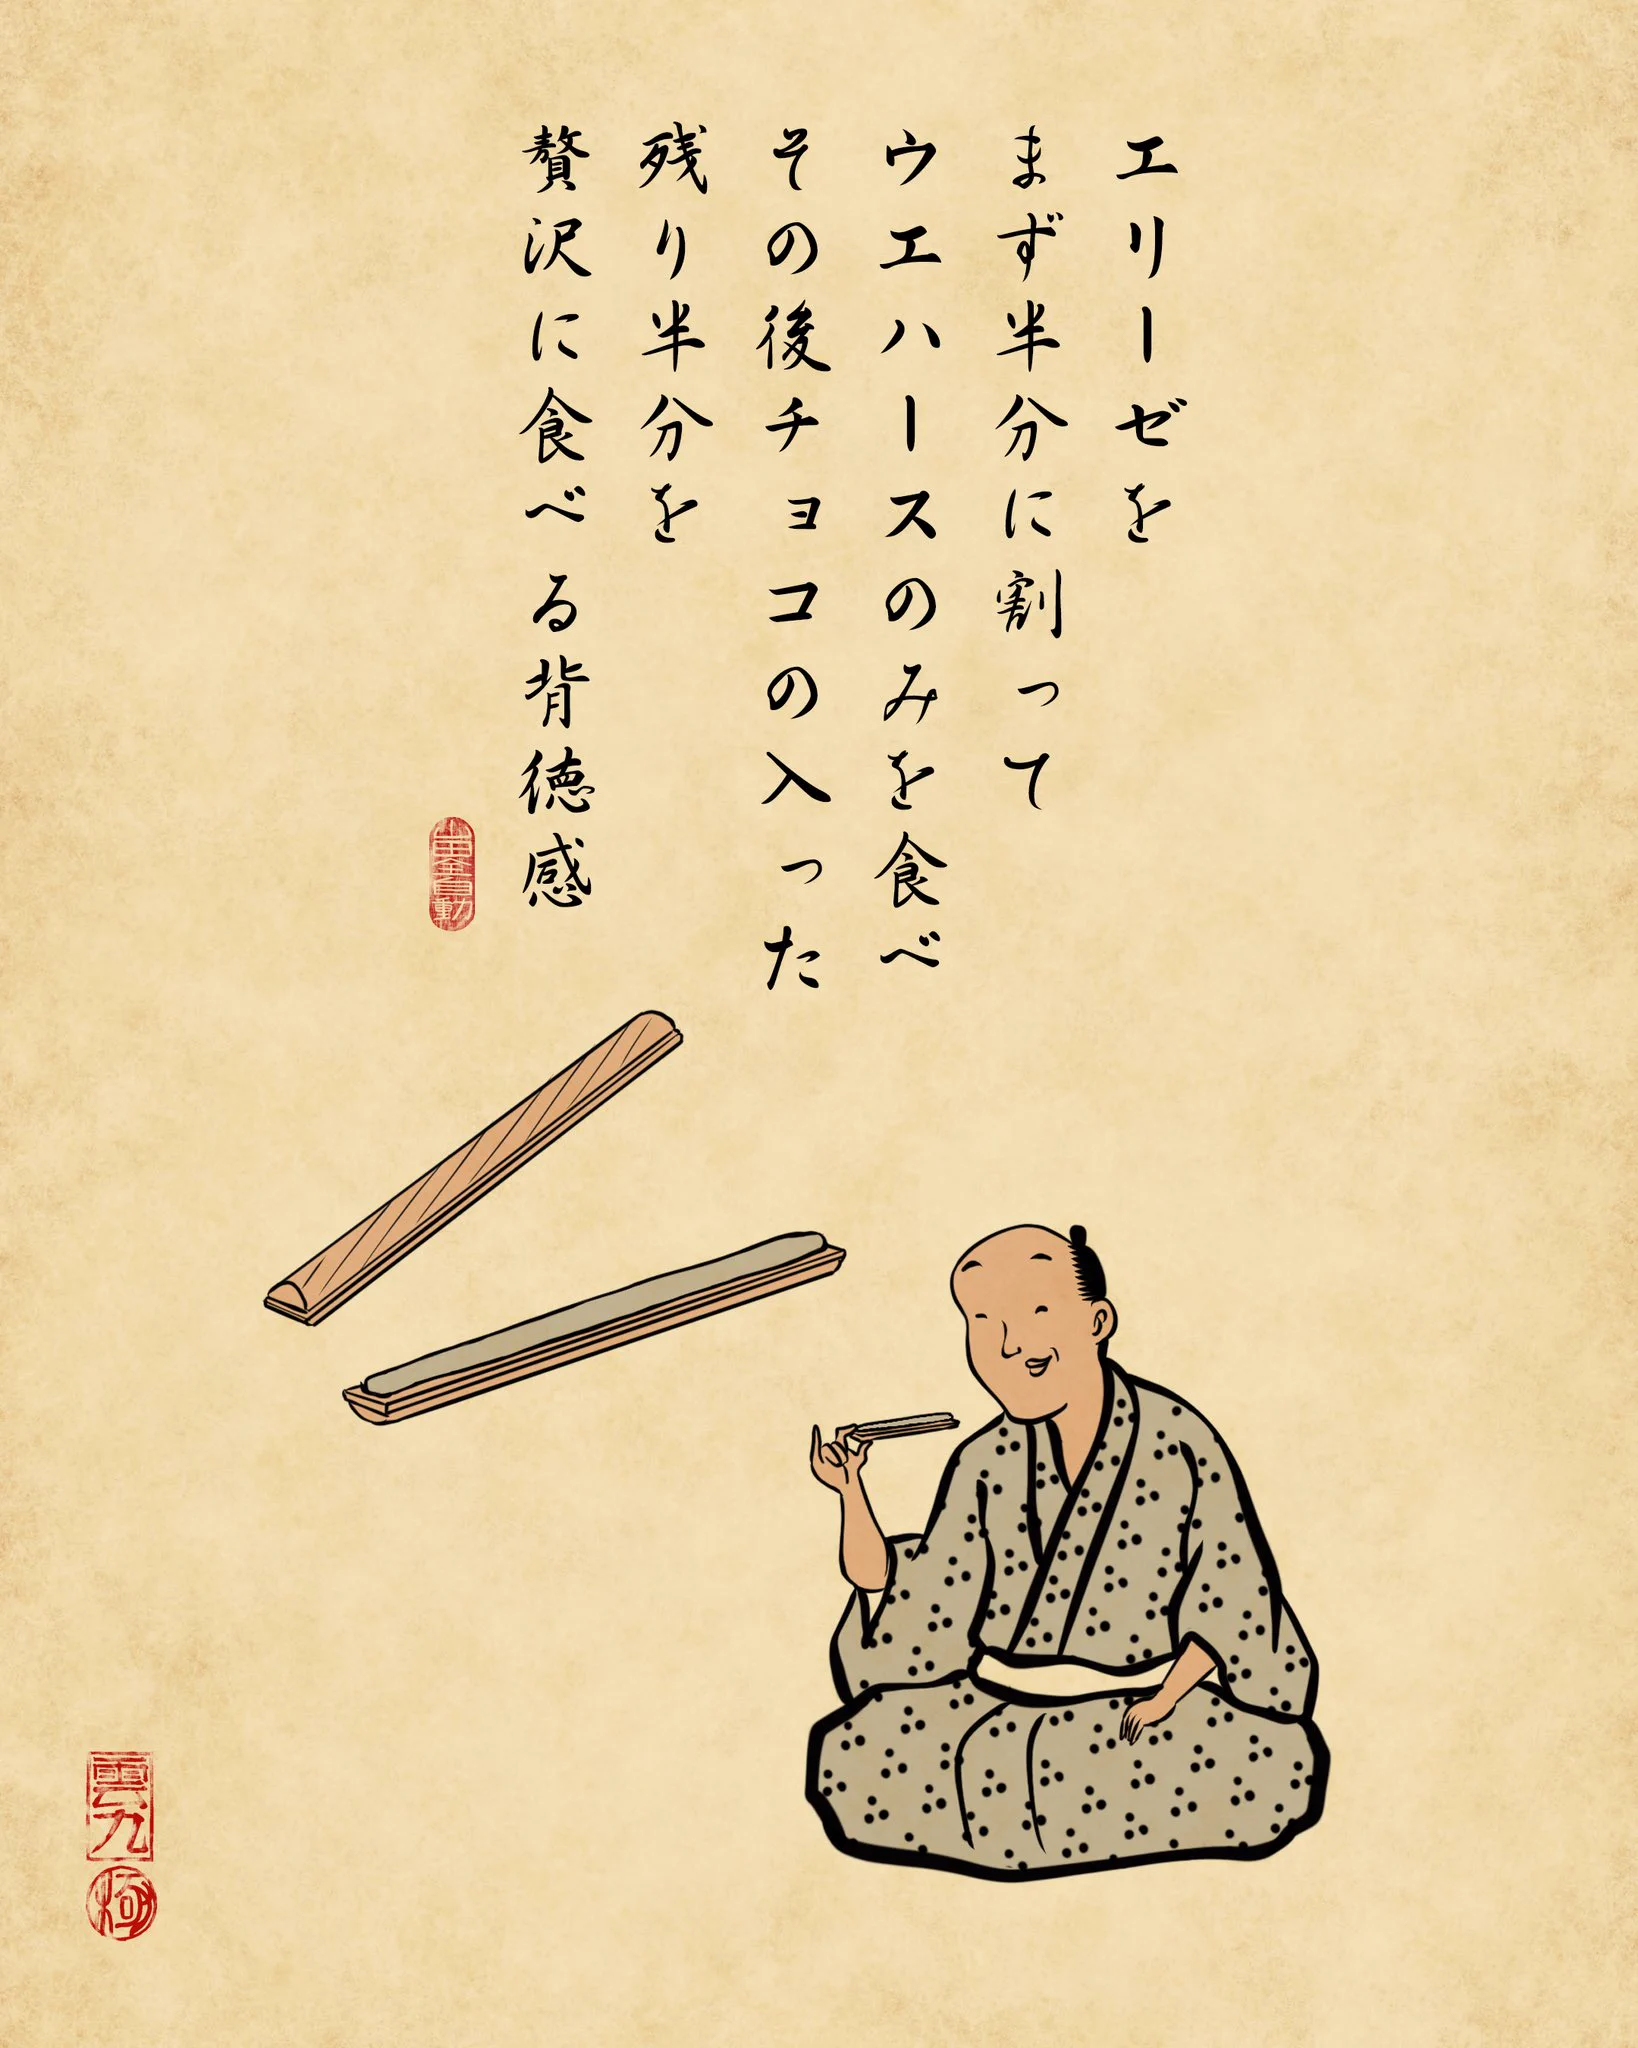 エリーゼを
まず半分に割って
ウエハースのみを食べ
その後チョコの入った
残り半分を
贅沢に食べる背徳感
雲九
極